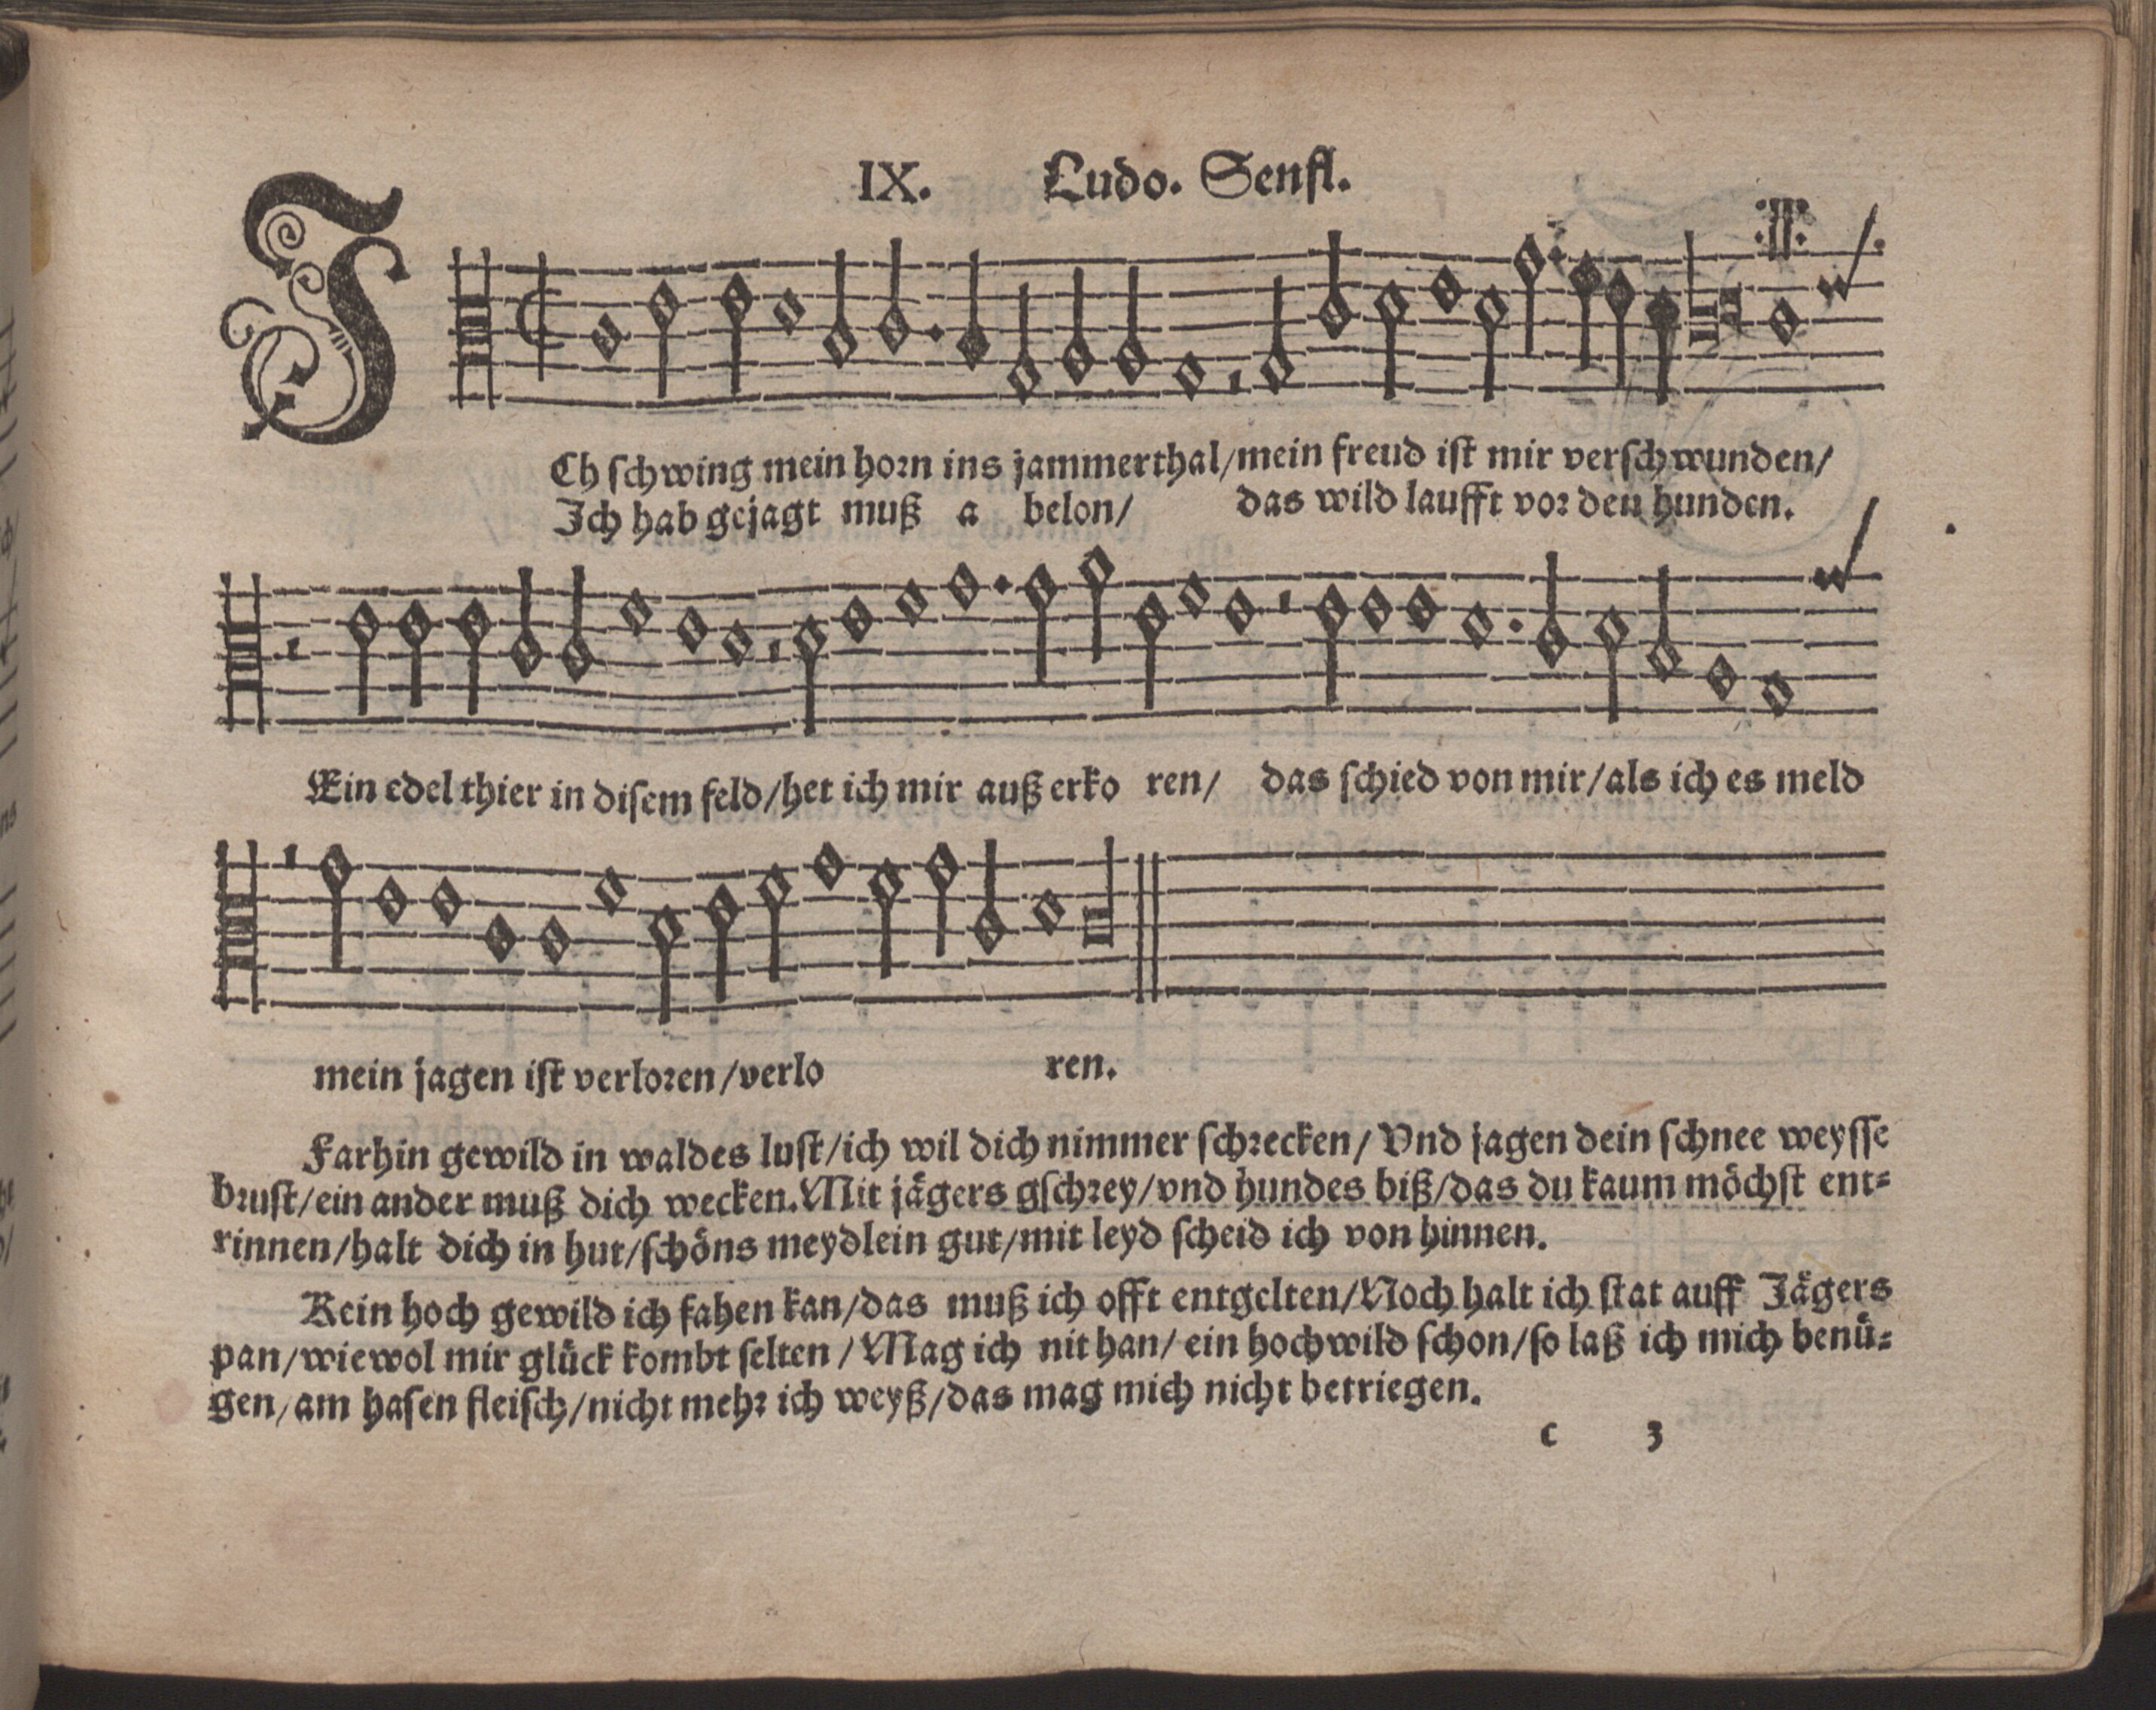 IX. Ludo. Senfl.
ICh ſchwing mein horn ins jammerthal/mein freud iſt mir verſchwunden/
Ich hab gejagt muß a belon/ das wild laufft vor den hunden.
Ein edel thier in diſem feld/het ich mir auß erko ren/ das ſchied von mir/als ich es meld
mein jagen iſt verloren/verlo ren.
Farhin gewild in waldes luſt/ich wil dich nimmer ſchrecken/ Vnd jagen dein ſchnee weyſſe
bruſt/ein ander muß dich wecken. Mit jägers gſchrey/vnd hundes biß/das du kaum möchſt ent⸗
rinnen/halt dich in hut/ſchöns meydlein gut/mit leyd ſcheid ich von hinnen.
Kein hoch gewild ich fahen kan/das muß ich offt entgelten/Noch halt ich ſtat auff Jägers
pan/wiewol mir glück kombt ſelten/Mag ich nit han/ ein hochwild ſchon/ſo laß ich mich benü⸗
gen/am haſen fleiſch/nicht mehr ich weyß/das mag mich nicht betriegen.
c 3